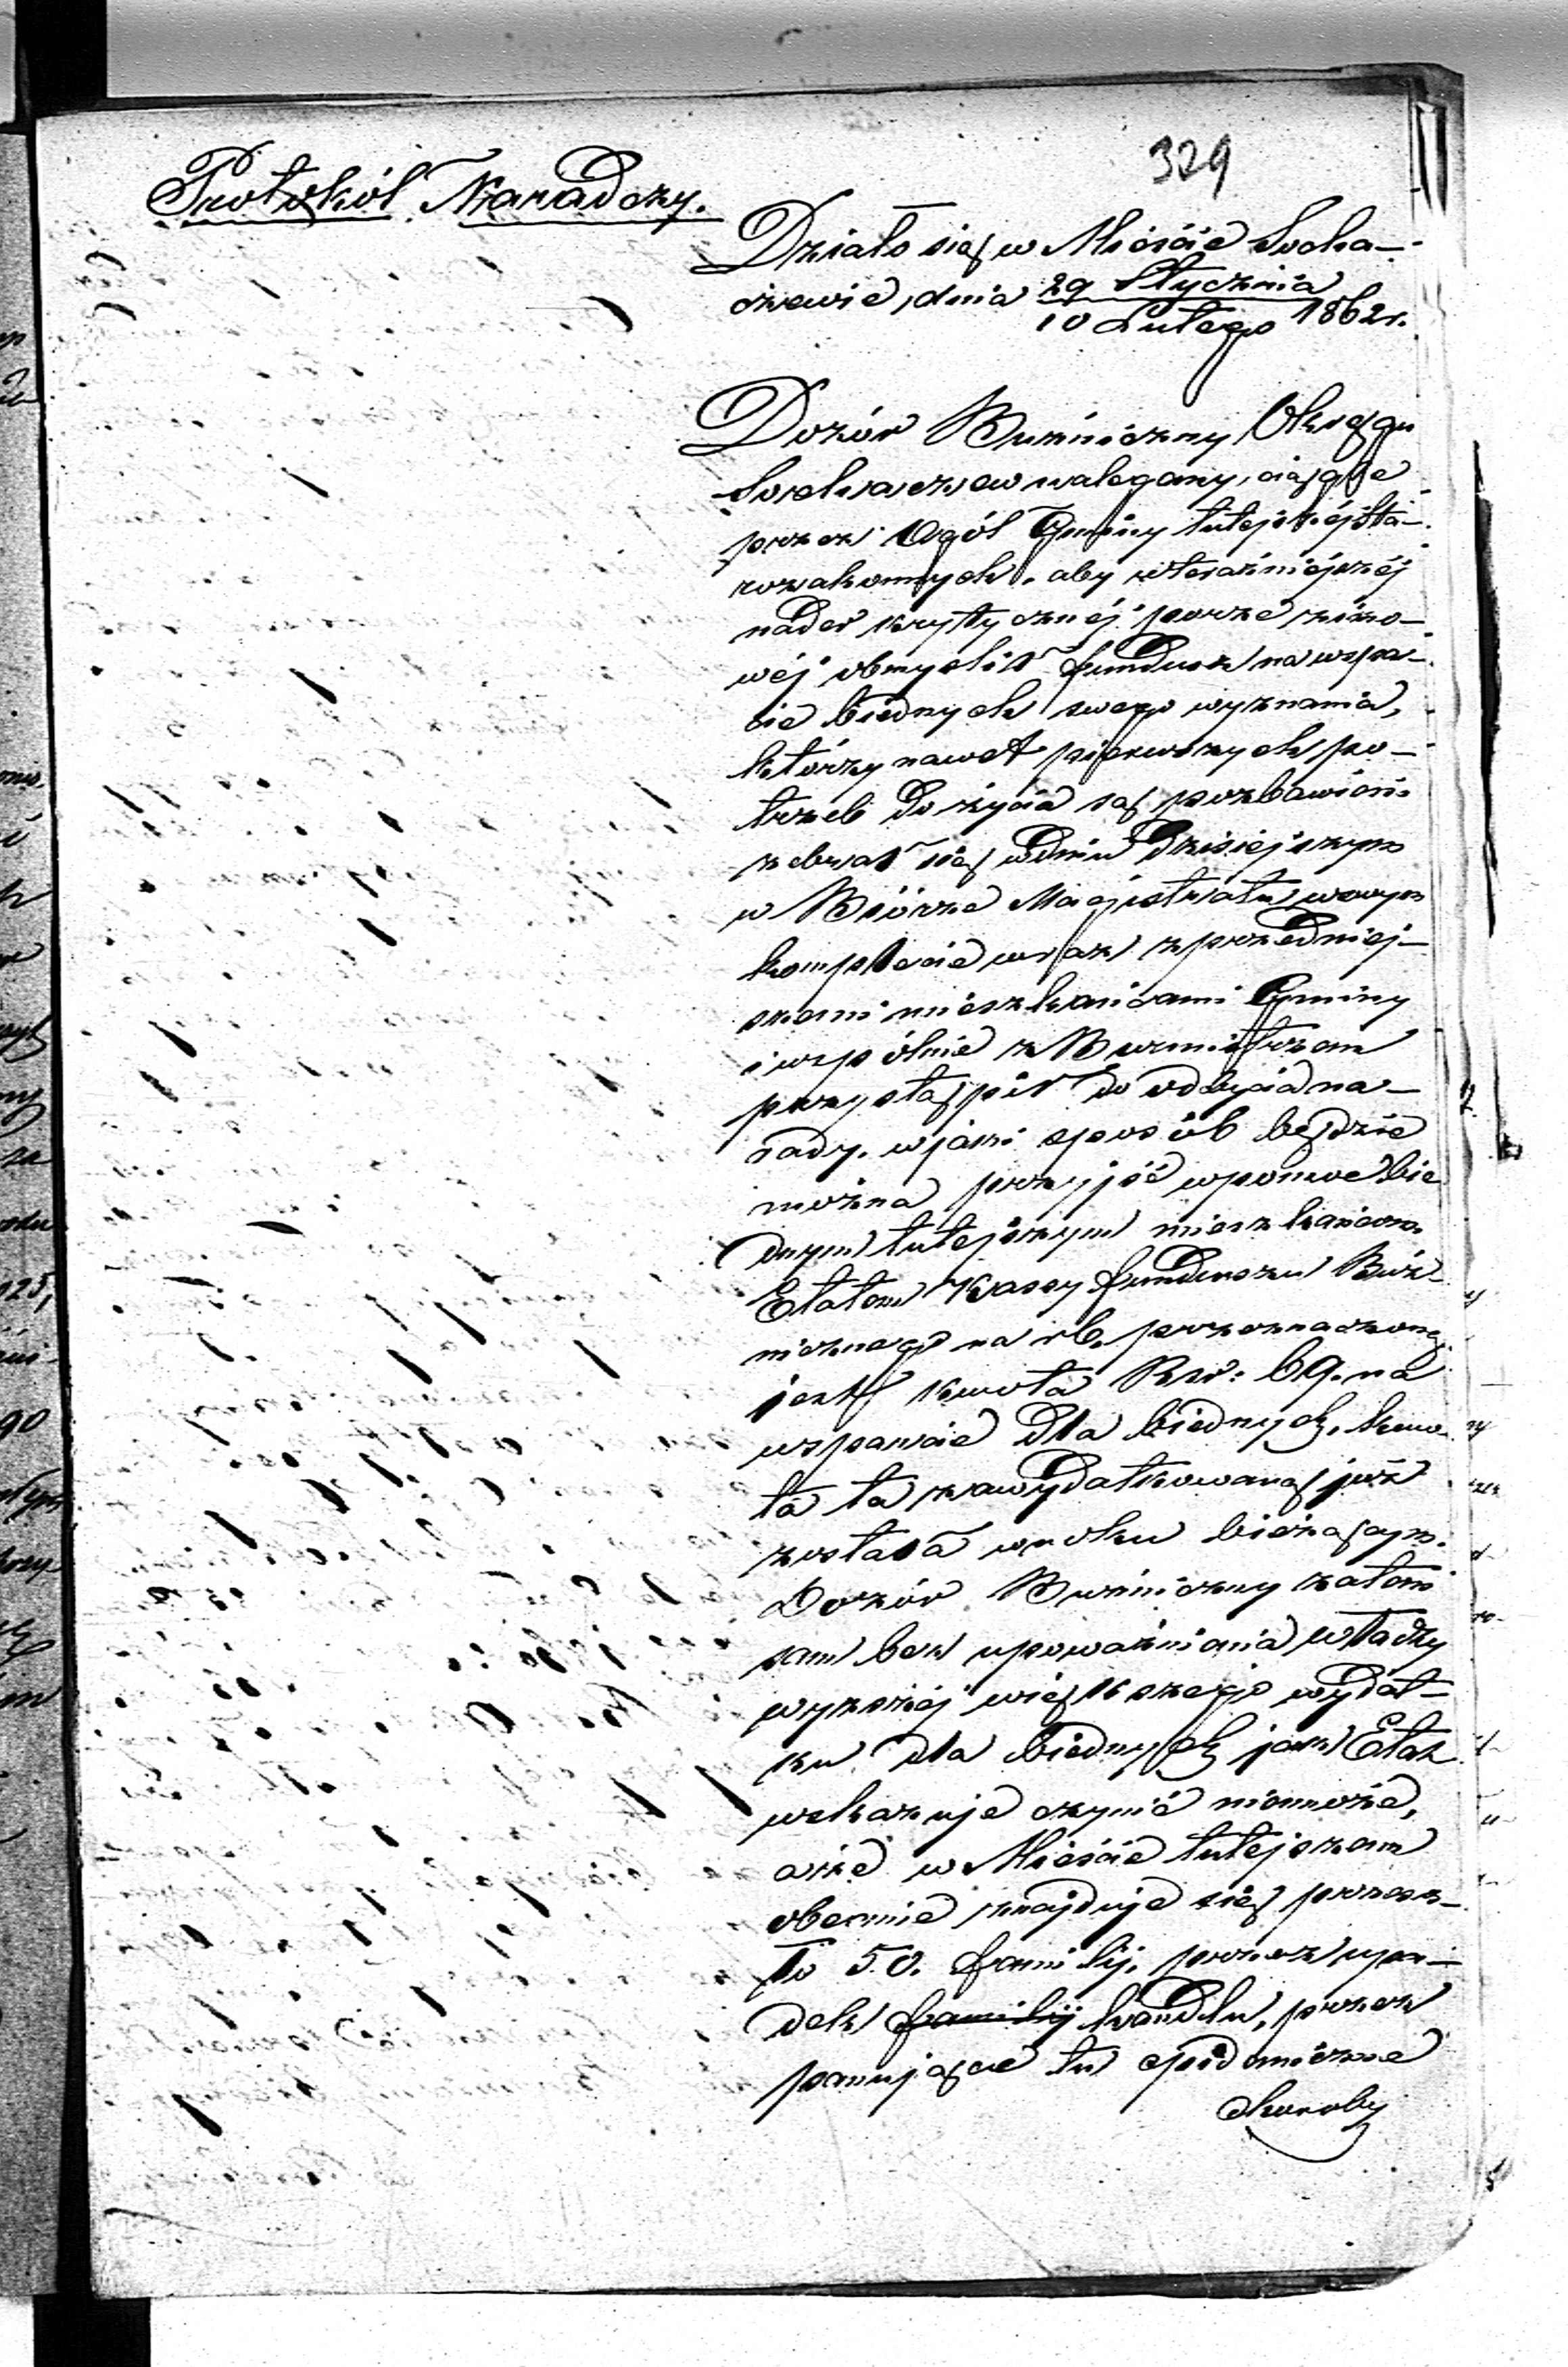 329
Protokół Naradczy.
Działo się w Mieście Socha-
czewie, dnia 29 Stycznia
10 Lutego 1862 r.
Dozór Bużniczny Okręgu
Sochaczew nalegany, ciągle
przez Ogół Gminy tutejszéj Sta-
rozakonnych, aby wteraźniejszéj
nader krytycznéj porze zimo-
wéj obmyślił fundusz na wspar-
cie biednych swego wyznania,
którzy nawet pierwszych po-
trzeb do życia są pozbawieni
zebrał się wdniu dzisiejszym
w Biórze Magistratu wswym
komplecie wraz zprzedniej-
szemi mieszkańcami Gminy
i wspólnie z Burmistrzem
przystąpił do odbycia na-
rady, wjaki sposób będzie
można przyjść wpomoc bie
dnym tutejszym mieszkańcom
Etatem Kassy funduszu Buż-
nicznego na rb. przeznaczoną
jest kwota Rsr: 69. na
wsparcie dla biednych, kwo-
ta ta zawydatkowaną już
została wroku bieżącym.
Dozór Bużniczny zatem
sam bez upoważnienia władzy
wyższéj większego wydat-
ku dla biednych jak Etat
wskazuje czynić niemoże,
aże w Mieście tutejszem
obecnie znajduje się przesz-
ło 50. familij, przez upa-
dek familij handlu, przez
panujące tu epidemiczne
choroby